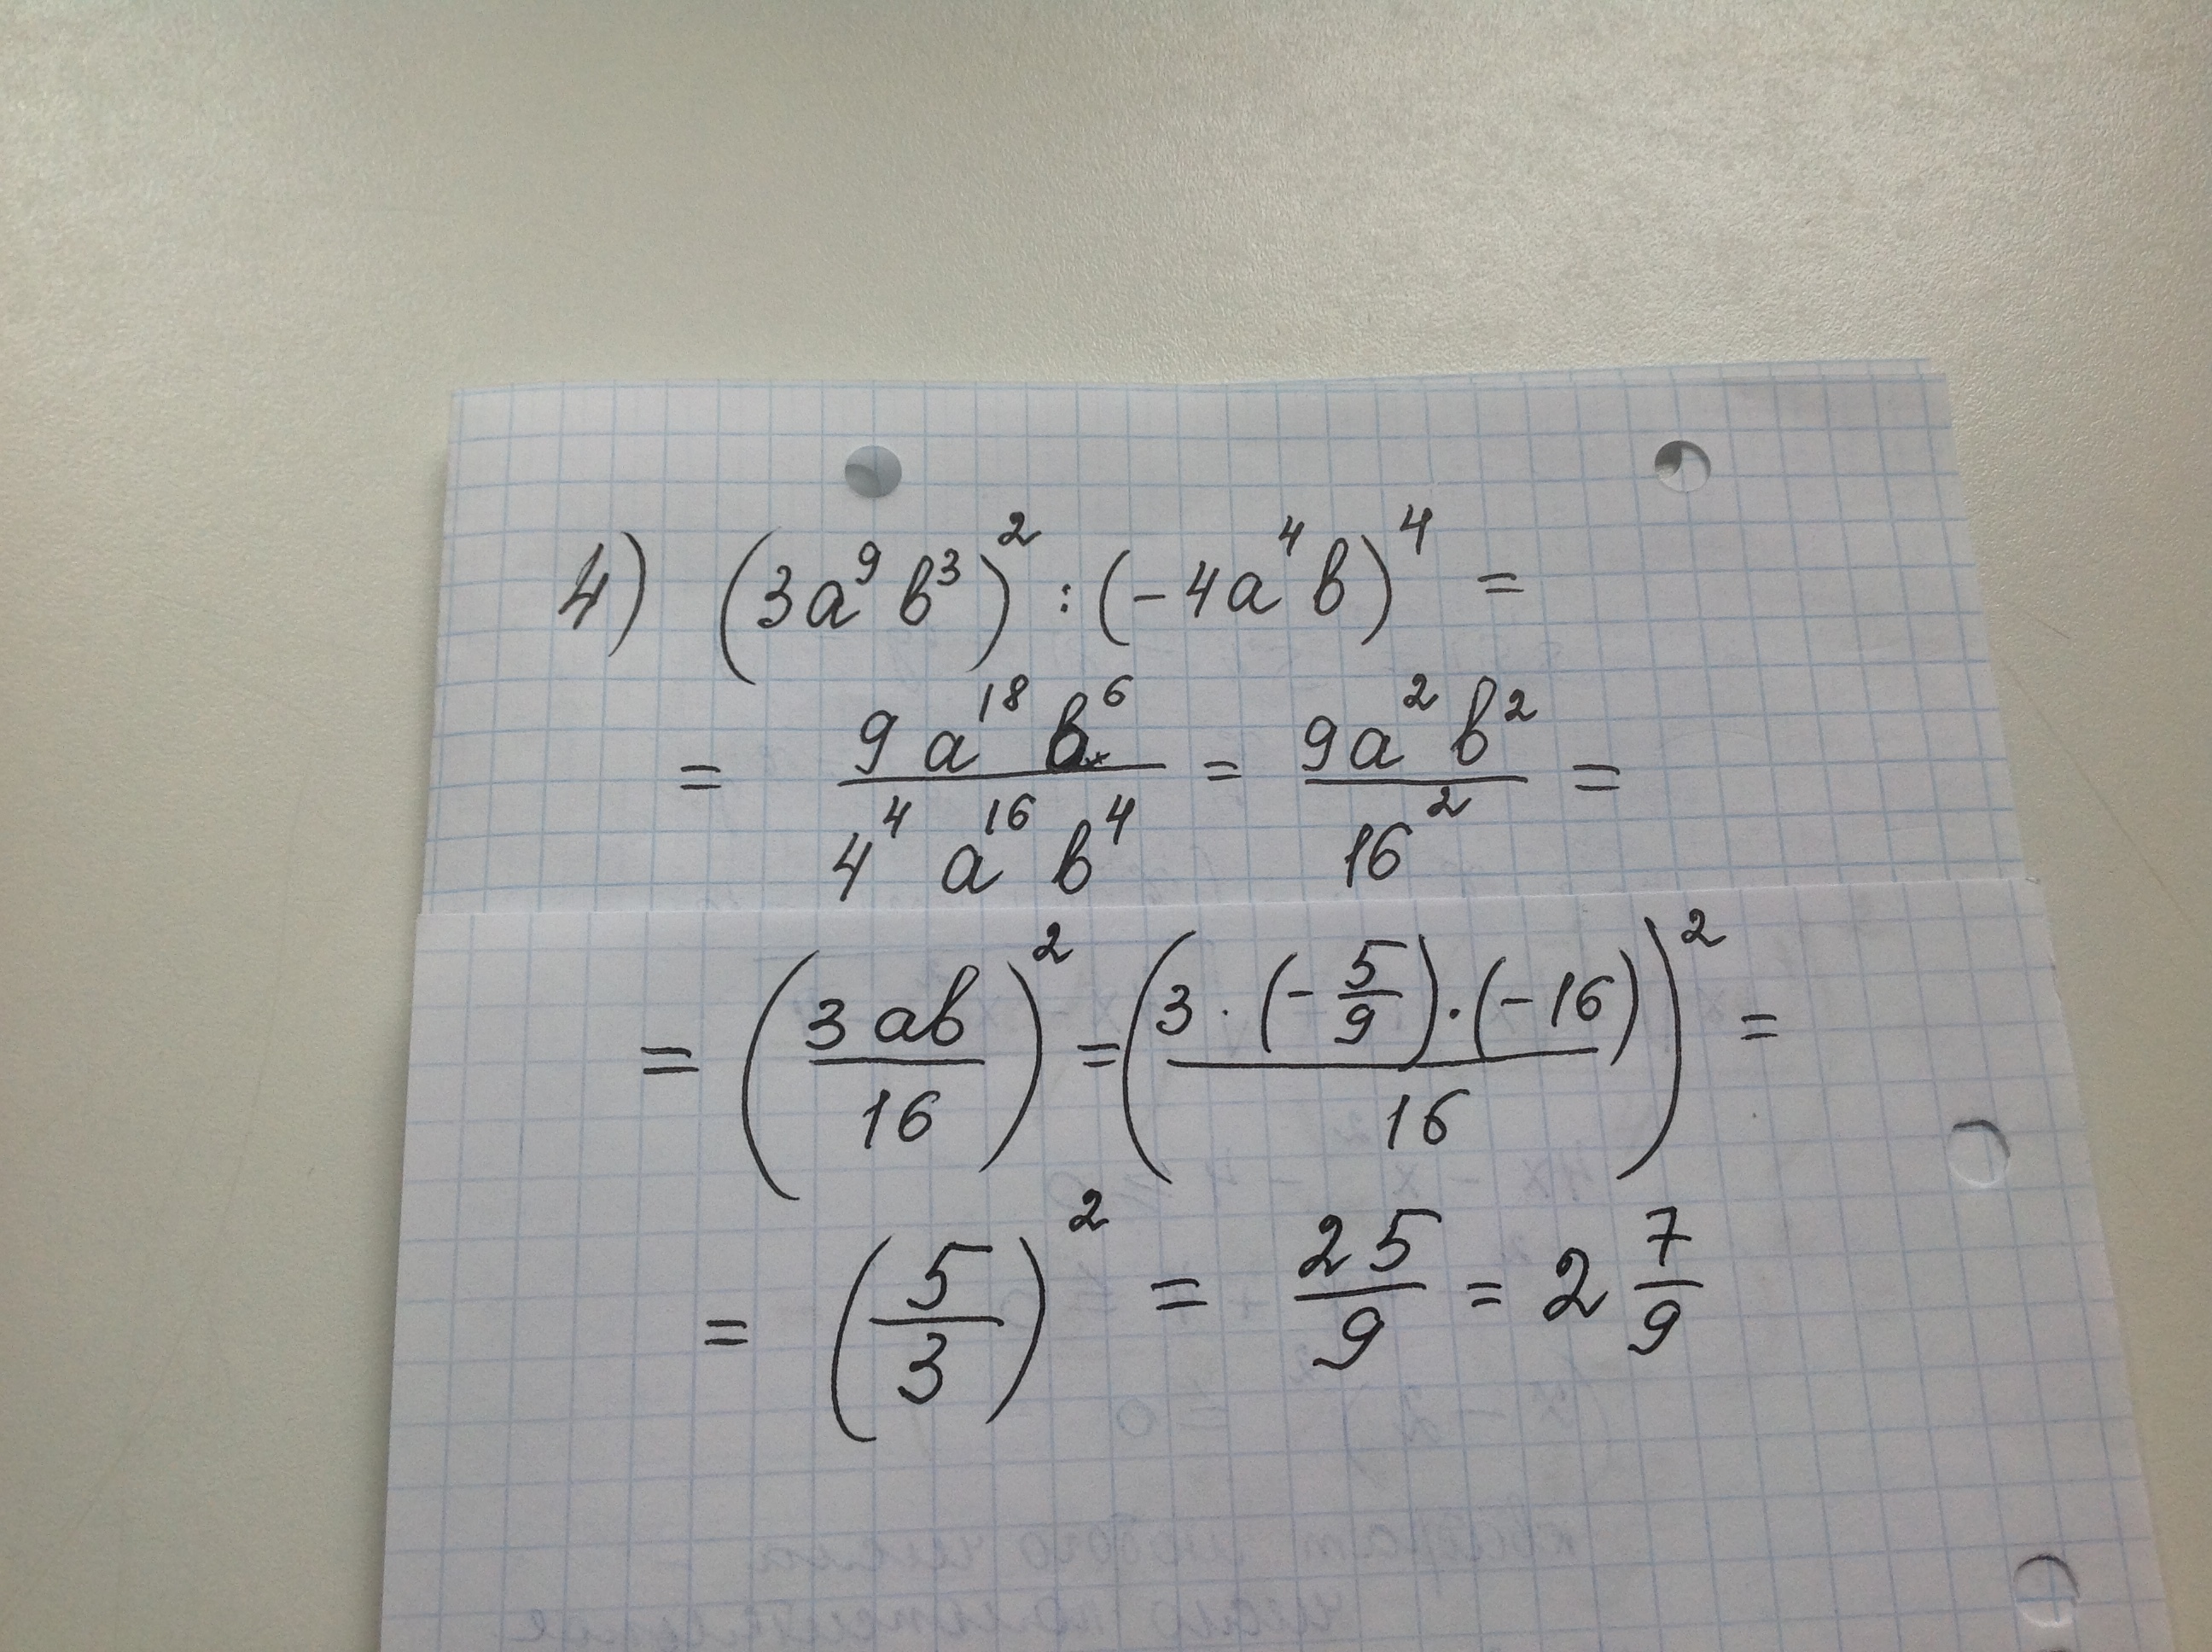 4) (3a⁹b³)² : (-4a⁴b)⁴ =
= 9a¹⁸b⁶/4⁴a¹⁶b⁴ = 9a²b²/16² =
= (3ab/16)² = (3·(-5/9)·(-16)/16)² =
= (5/3)² = 25/9 = 2 7/9